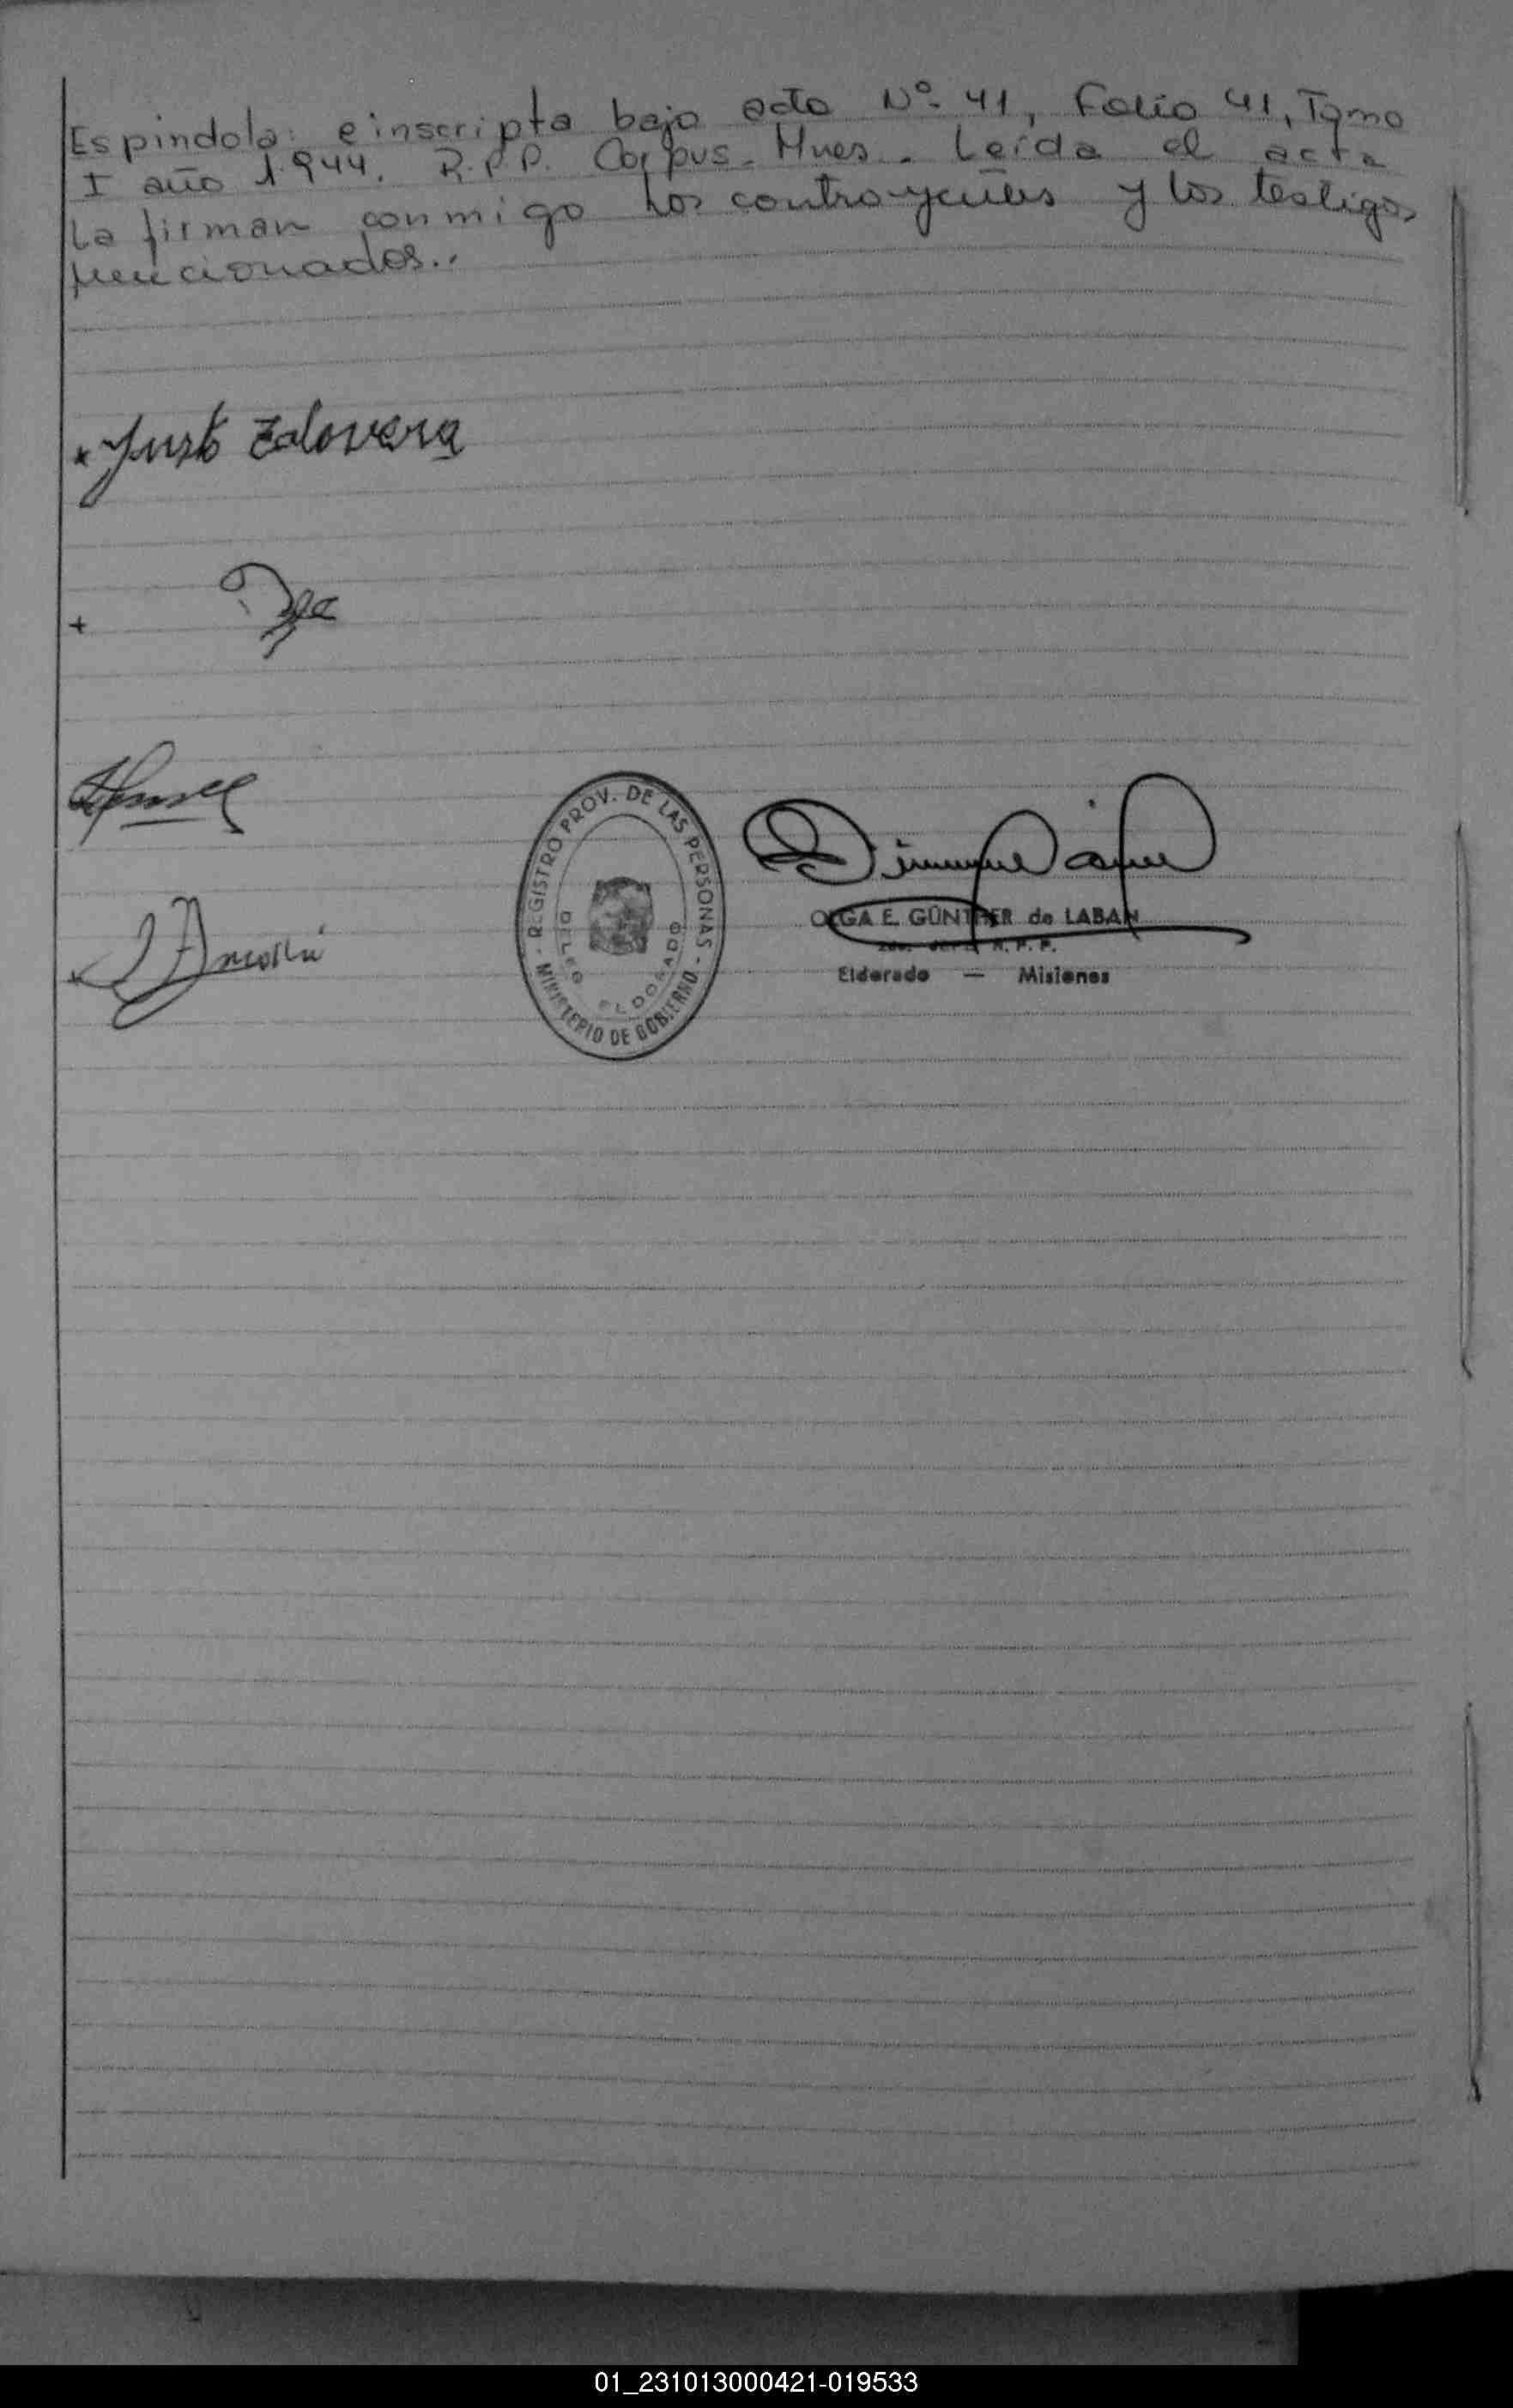 Espindola: e inscripta bajo acta Nº- 41, Folio 41, Tomo
I año 1.944. R.P.P. Corpus - Mnes. Leída el acta
la firman conmigo los contrayentes y los testigos
mencionados..
Justo Talovera
REGISTRO PROV. DE LAS PERSONAS - MINISTERIO DE GOBIERNO -
DELEG ELDORADO
OLGA E. GÜNTHER de LABAN
R. P. P.
Eldorado — Misiones
01_231013000421-019533